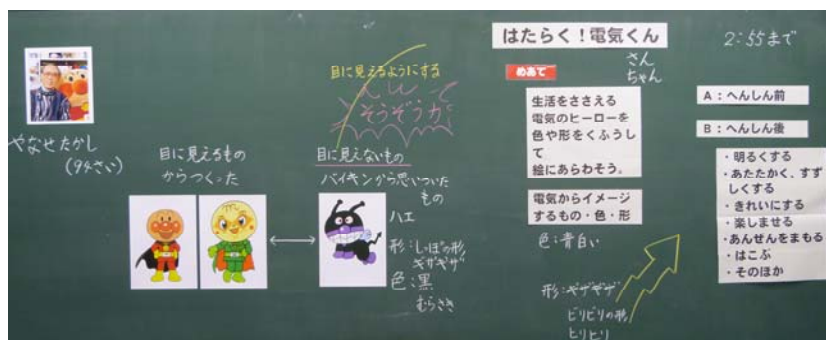 やなせたかし
(94さい)
目に見えるもの
からつくった
目に見えるようにする
そうぞう力
目に見えないもの
バイキンから思いついた
もの
ハエ
形:しっぽの形,
ギザギザ
色:黒
むらさき
はたらく!電気くん
さん
ちゃん
めあて
生活をささえる
電気のヒーローを
色や形をくふうし
て
絵にあらわそう。
電気からイメージ
するもの・色・形
色:青白い
形:ギザギザ
ビリビリの形,
ヒリヒリ
2:55まで
A:へんしん前
B:へんしん後
・明るくする
・あたたかく、すず
しくする
・きれいにする
・楽しませる
・あんぜんをまもる
・はこぶ
・そのほか